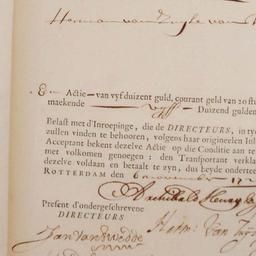 Herman van
Een Actie — van vyf duizent guld, courant geld van 20 st
maekende — vyff — Duizend gulden
Belast met d'Inroepinge, die de DIRECTEURS, in ty
zullen vinden te behooren, volgens haar origineelen In
Acceptant bekent dezelve Actie op de Conditie aan te
met volkomen genoegen: den Transportant verkla
dezelve voldaan en betaalt te zyn, dus beyde onderte
ROTTERDAM den 6 november 17
Archibald
Present d'ondergeschrevene
DIRECTEURS
van
Jan van